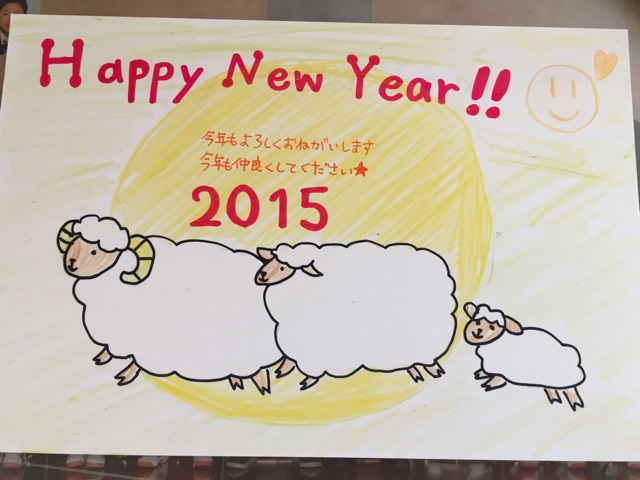 Happy New Year!!
今年もよろしくおねがいします
今年も仲良くしてください★
2015